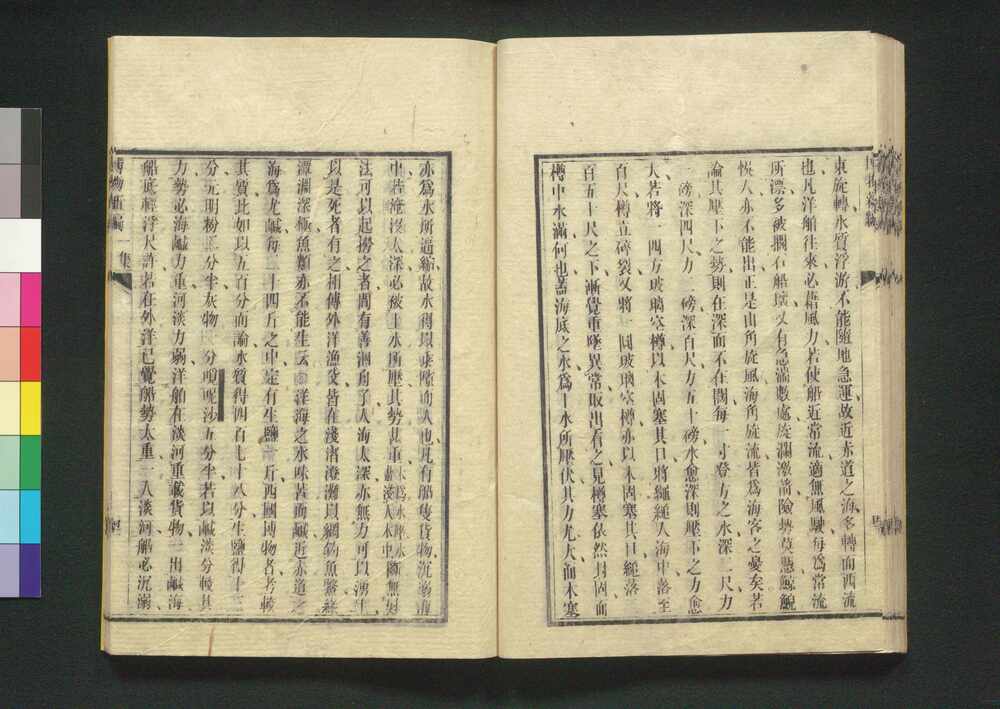 東旋轉水質浮游不能隨地急運故近赤道之海多轉而西流
也凡洋船往來必藉風力若使船近常流適無風駛每爲常流
所漂多被擱石船壞又有急湍數處旋瀾激瀚險勢莫懸鯨鯢
恢人亦不能出正是山角旋風海角旋流皆爲海客之憂矣若
論其壓下之勢則在深而不在闊每一寸登方之水深二尺力
一磅深四尺力二磅深百尺力五十磅水愈深則壓下之力愈
大若將一四方玻璃空樽以木固塞其口將繩縋入海中落至
百尺樽立碎裂又將一圓玻璃空樽亦以木固塞其口縋落一
百五十尺之下漸覺重墜異常取出看之見樽塞依然封固而
樽中水滿何也蓋海底之水爲上水所壓伏其力尤大而木塞
亦爲水所逼縮故水得環乘隙而入也凡有船隻貨物沉溺海
中若淹沒太深必被上水所壓其勢甚重
法可以起撈之者間有善泅舟子入海太深亦無力可以湧生
以是死者有之相傳外洋漁殳皆在淺渚澄灘以網鈎魚鼈絲
潭淵深極魚類亦不能生云 洋海之水味苦而鹹近赤道之
海爲尤鹹每二十四斤之中定有生鹽 斤西國博物者考較
其質比如以五百分而論水質得四百七十八分生鹽得十三
分元明粉 分半灰物 分嗅呢沙五分半若以鹹淡分較其
力勢必海鹹力重河淡力弱洋船在淡河重載貨物一出鹹海
船底輕浮尺許若在外洋已覺船勢太重一入淡河船必沉溺
博物新編 一集